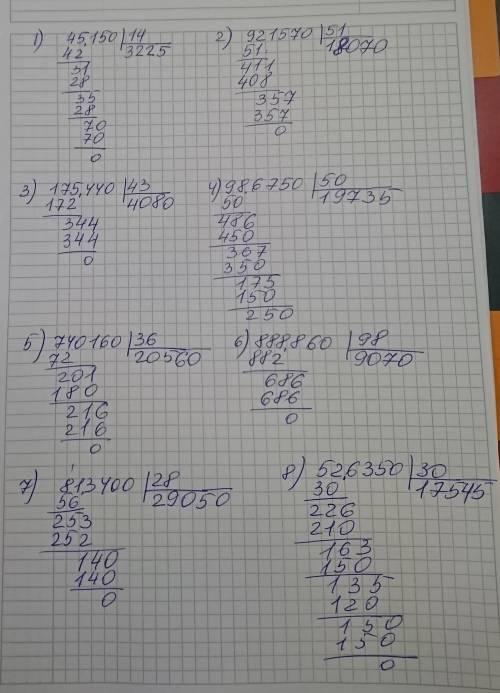 1) 45.150 | 14
42 3225
31
28
35
28
70
70
0
2) 921570 | 51
51. 18070
411
408
357
357
0
3) 175,440 | 43
172 4080
344
344
0
4) 98,6750 | 50
50 19735
486
450
367
350
175
150
250
5) 740160 | 36
72 20560
201
180
216
216
0
6) 888860 | 98
882 9070
686
686
0
7) 813400 | 28
56 29050
253
252
140
140
0
8) 52,6350 | 30
30 17545
226
210
163
150
135
120
150
150
0